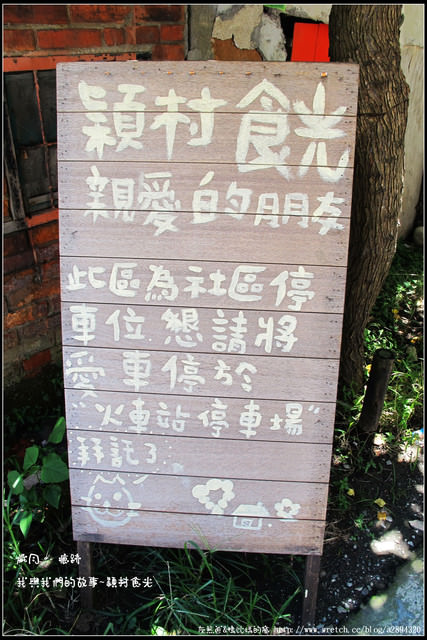 穎村食光
親愛的朋友
此區為社區停
車位懇請將
愛車停於
"火車站停車場"
拜託了
我與我們的故事~穎村食光
http://www.wretch.cc/blog/a2894320